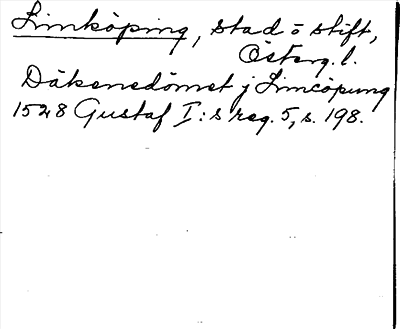 Linköping, stad o stift,
Österg. l.
Däkenedömet j Lincöpung
1528 Gustaf I:s reg. 5, s. 198.